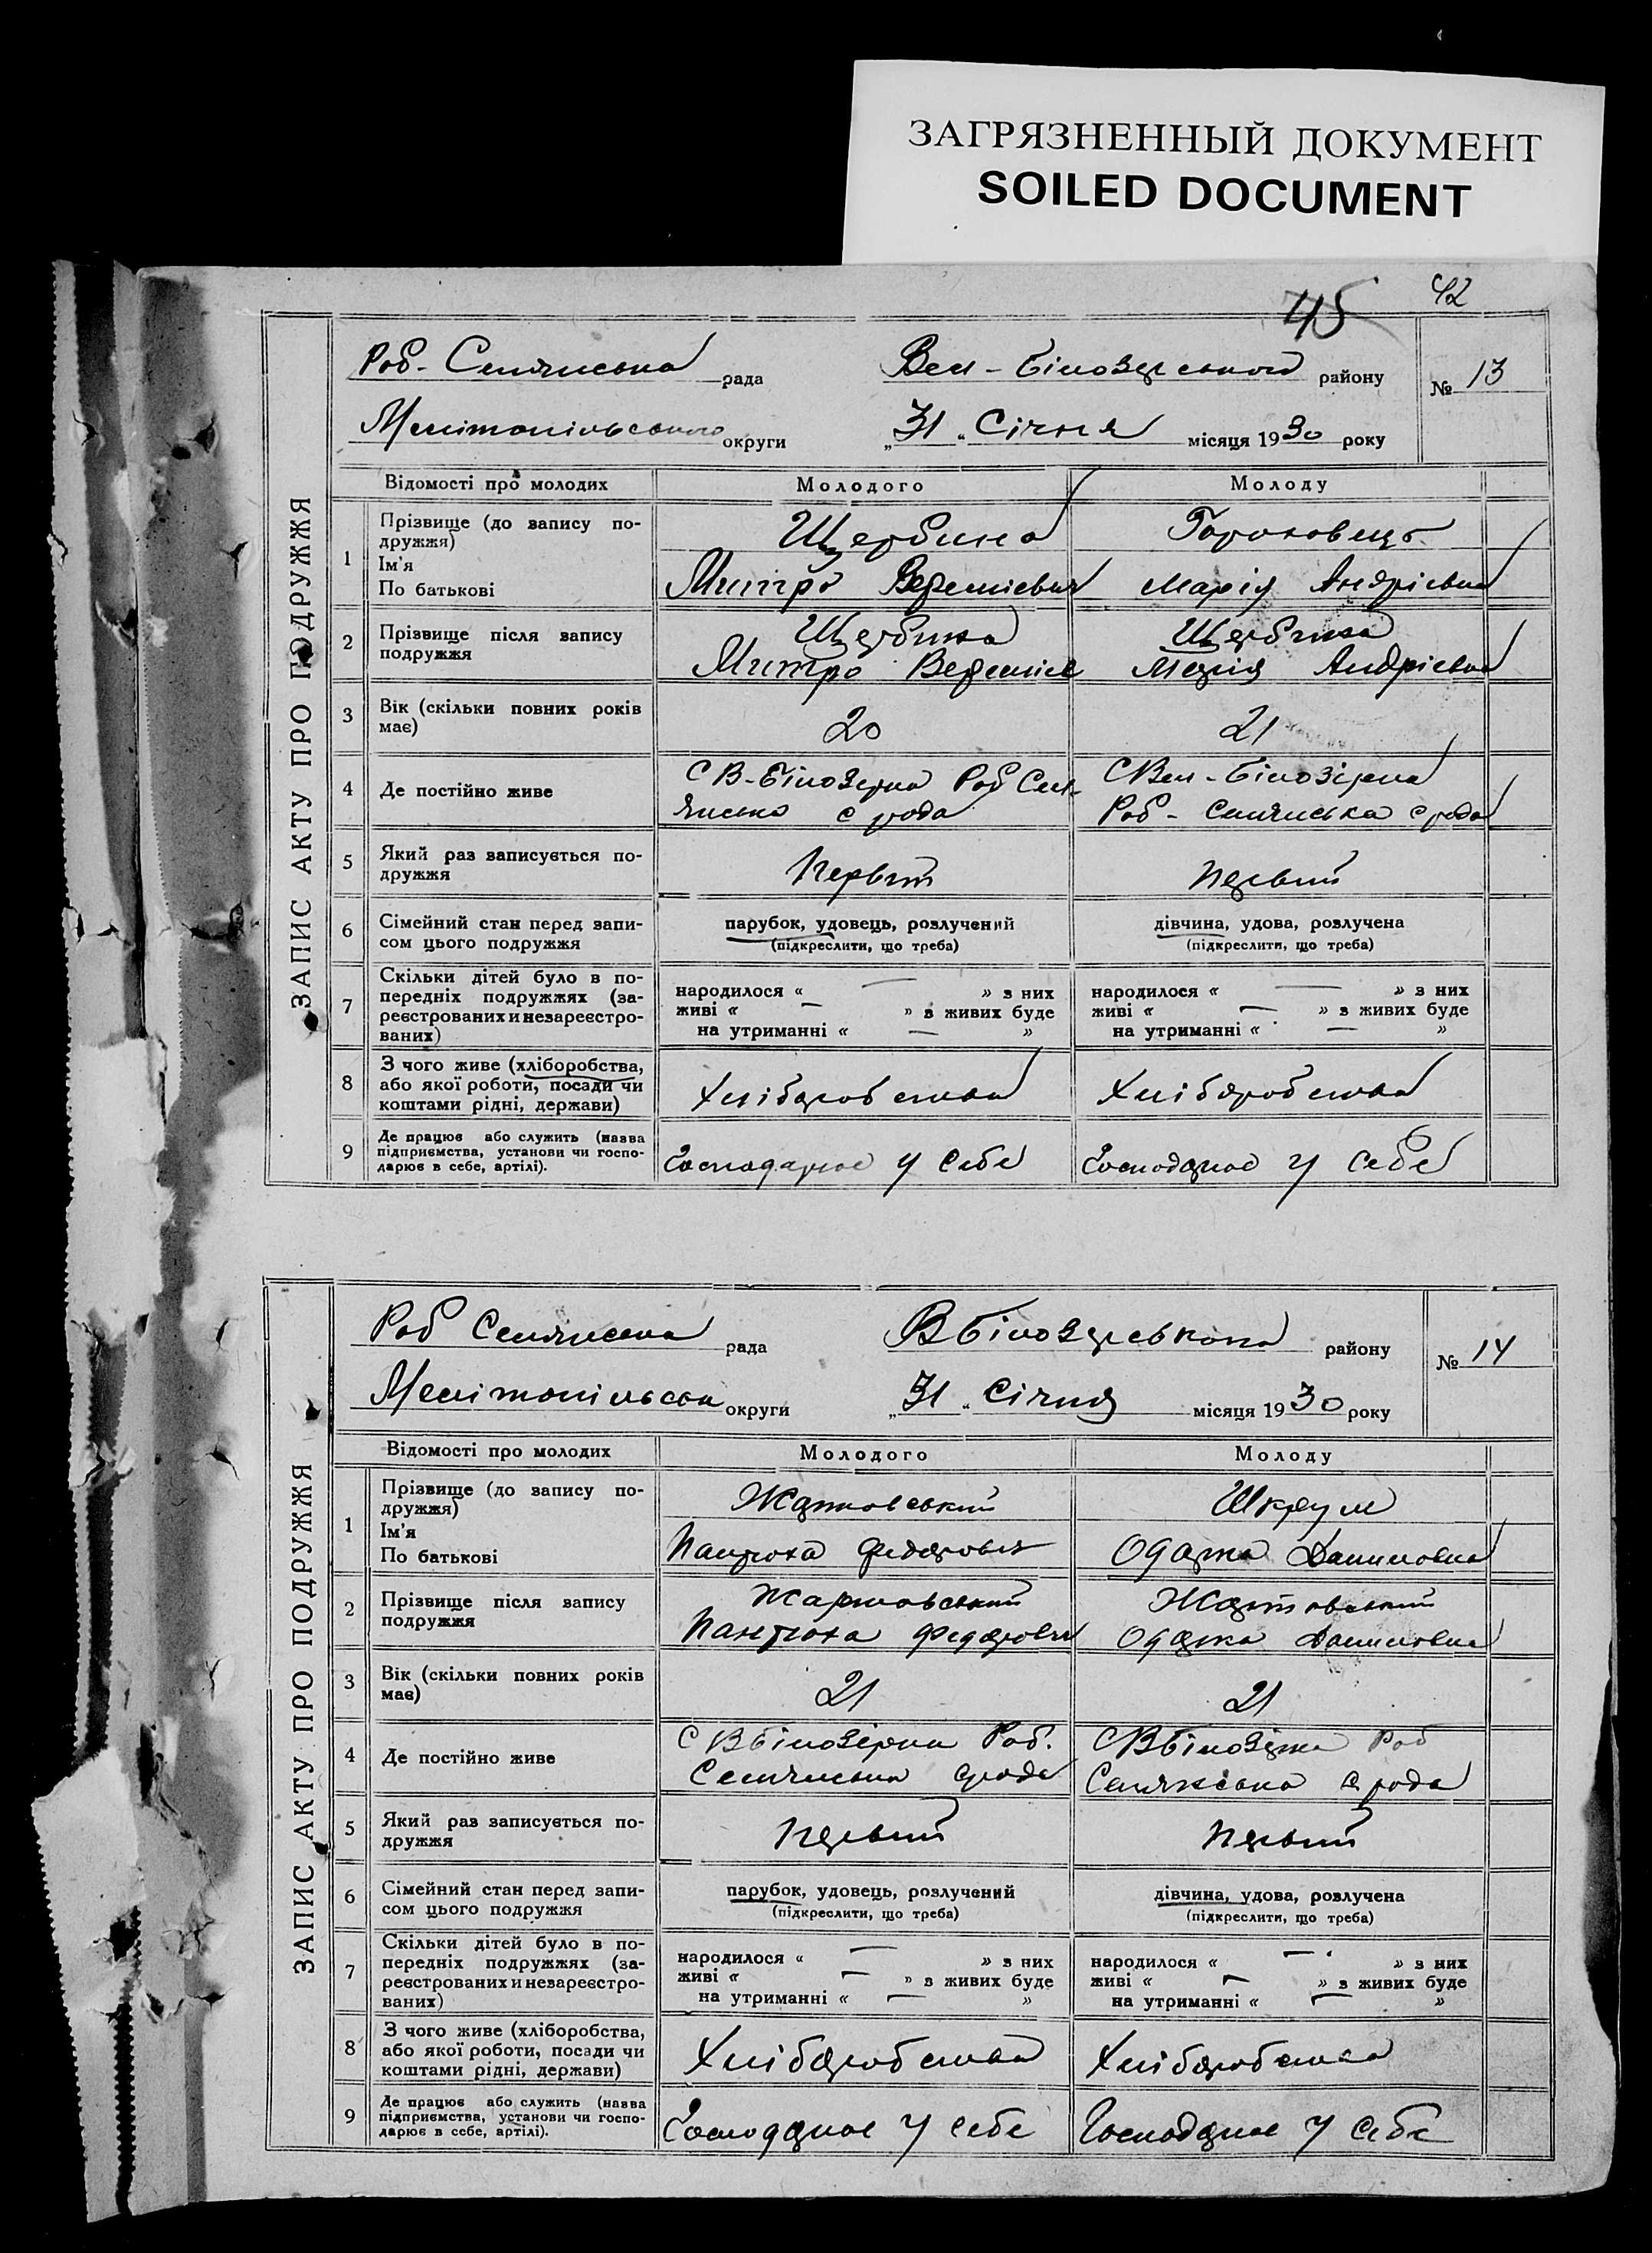 ЗАГРЯЗНЕННЫЙ ДОКУМЕНТ
SOILED DOCUMENT
45 42
ЗАПИС АКТУ ПРО ПОДРУЖЖЯ
Роб- Селянська рада Вел-Білозерського району № 13
Мелітопільського округи „31“ Січня місяця 1930 року
Відомості про молодих Молодого Молоду
1 Прізвище (до запису подружжя) Щербина
Ім'я
По батькові Митро Марія Андрієвна
2 Прізвище після запису подружжя Щербина Щербина
Митро Марія Андрієвна
3 Вік (скільки повних років має) 20 21
4 Де постійно живе С В-Білозірка Роб Сел- С Вел-Білозірка
янська с рада Роб- Селянська с рада
5 Який раз записується подружжя Первий Первий
6 Сімейний стан перед записом цього подружжя парубок, удовець, розлучений дівчина, удова, розлучена
(підкреслити, що треба) (підкреслити, що треба)
7 Скільки дітей було в попередніх подружжях (зареєстрованих и незареєстрованих) народилося « — » з них народилося « — » з них
живі « — » з живих буде живі « — » з живих буде
на утриманні « — » на утриманні « — »
8 З чого живе (хліборобства, або якої роботи, посади чи коштами рідні, держави) Хліборобства Хліборобства
9 Де працює або служить (назва підприємства, установи чи господарює в себе, артілі). Господарює у себе Господарює у себе
ЗАПИС АКТУ ПРО ПОДРУЖЖЯ
Роб Селянська рада В Білозерського району № 14
Мелітопільськ округи „31“ Січня місяця 1930 року
Відомості про молодих Молодого Молоду
1 Прізвище (до запису подружжя) Шкрум
Ім'я
По батькові Федорович Одарка Даниловна
2 Прізвище після запису подружжя
Федорович Одарка Даниловна
3 Вік (скільки повних років має) 21 21
4 Де постійно живе С В Білозірка Роб. С В Білозірка Роб
Селянська срада Селянська с рада
5 Який раз записується подружжя Первий Первий
6 Сімейний стан перед записом цього подружжя парубок, удовець, розлучений дівчина, удова, розлучена
(підкреслити, що треба) (підкреслити, що треба)
7 Скільки дітей було в попередніх подружжях (зареєстрованих и незареєстрованих) народилося « — » з них народилося « — » з них
живі « — » з живих буде живі « — » з живих буде
на утриманні « — » на утриманні « — »
8 З чого живе (хліборобства, або якої роботи, посади чи коштами рідні, держави) Хліборобства Хліборобства
9 Де працює або служить (назва підприємства, установи чи господарює в себе, артілі). Господарює у себе Господарює у себе